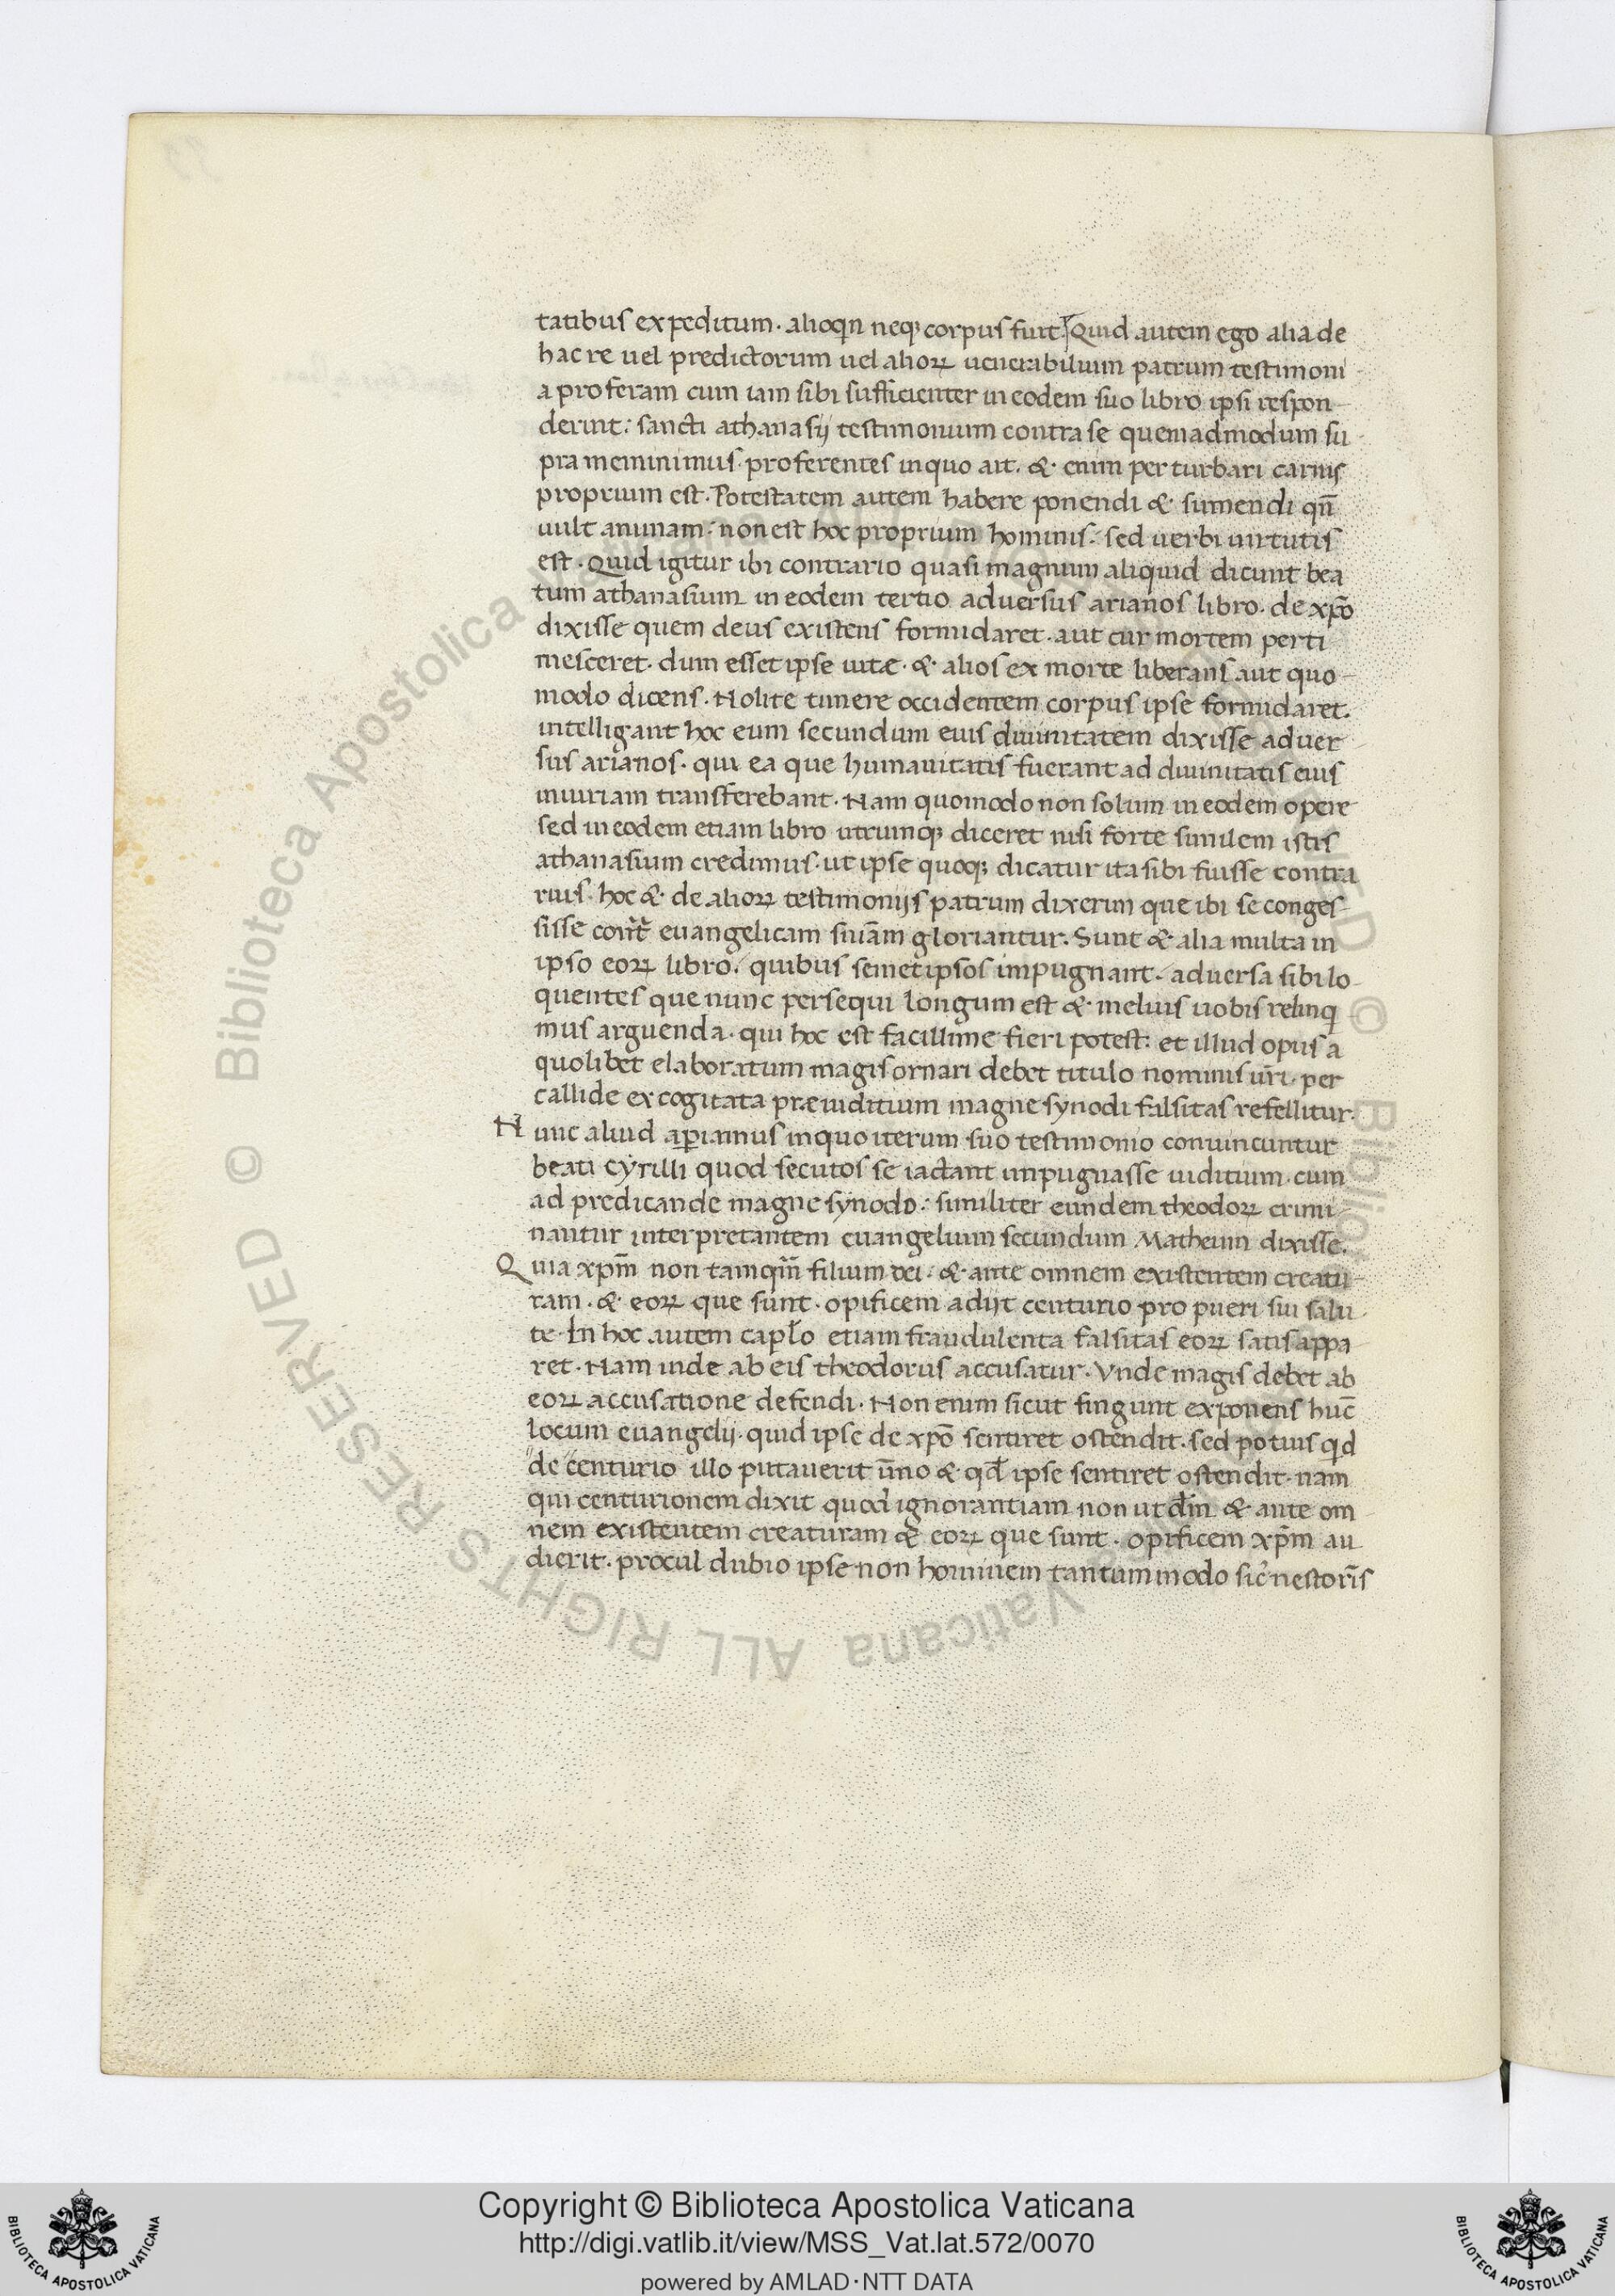 tatibus expeditum. alioqn neq; corpus fuit. Quid autem ego alia de
hac re uel predictorum uel alioꝝ uenerabilium patrum testimoni
a proferam cum iam sibi sufficienter in eodem suo libro ipsi respon
derint: sancti athanasij testimonium contra se quemadmodum su
pra meminimus. proferentes in quo ait. & enim perturbari carnis
proprium est. Potestatem autem habere ponendi & sumendi qn̄
uult animam: non est hoc proprium hominis: sed uerbi uirtutis
est. Quid igitur ibi contrario quasi magnum aliquid dicunt bea
tum athanasium in eodem tertio aduersus arianos libro. de xp̄o
dixisse quem deus existens formidaret. aut cur mortem perti
mesceret. dum esset ipse uitæ. & alios ex morte liberans aut quo
modo dicens. Nolite timere occidentem corpus ipse formidaret.
intelligant hoc eum secundum eius diuinitatem dixisse aduer
sus arianos. qui ea que humanitatis fuerant ad diuinitatis eius
iniuriam transferebant. Nam quomodo non solum in eodem opere
sed in eodem etiam libro utrumq; diceret nisi forte similem istis
athanasium credimus. ut ipse quoq; dicatur ita sibi fuisse contra
rius. hoc & de alioꝝ testimonijs patrum dixerim que ibi se conges
sisse contr̄ euangelicam siuām gloriantur. Sunt & alia multa in
ipso eoꝝ libro. quibus semetipsos impugnant. aduersa sibi lo
quentes que nunc persequi longum est & melius uobis relinq
mus arguenda. qui hoc est facillime fieri potest: et illud opus a
quolibet elaboratum magis ornari debet titulo nominis ur̄i. per
callide excogitata præiuditium magne synodi falsitas refellitur.
Nunc aliud aperiamus in quo iterum suo testimonio conuincuntur
beati cyrilli quod secutos se iactant impugnasse iuditium. cum
ad predicande magne synodo: similiter eundem theodoꝝ crimi
nantur interpretantem euangelium secundum Matheum dixisse.
Quia xp̄m non tamqm̄ filium dei. & ante omnem existentem creatu
ram. & eoꝝ que sunt. opificem adijt centurio pro pueri sui salu
te. In hoc autem capl̄o etiam fraudulenta falsitas eoꝝ satis appa
ret. Nam inde ab eis theodorus accusatur. Vnde magis debet ab
eoꝝ accusatione defendi. Non enim sicut fingunt exponens hūc
locum euangelij. quid ipse de xp̄o sentiret ostendit. sed potius qd
de centurio illo putauerit ūno & qd̄ ipse sentiret ostendit. nam
qui centurionem dixit quod ignorantiam non ut dm̄ & ante om
nem existentem creaturam & eoꝝ que sunt. opificem xp̄m au
dierit. procul dubio ipse non hominem tantummodo sic̄ nestor̄is
Copyright © Biblioteca Apostolica Vaticana
http://digi.vatlib.it/view/MSS_Vat.lat.572/0070
powered by AMLAD·NTT DATA
BIBLIOTECA APOSTOLICA VATICANA
BIBLIOTECA APOSTOLICA VATICANA